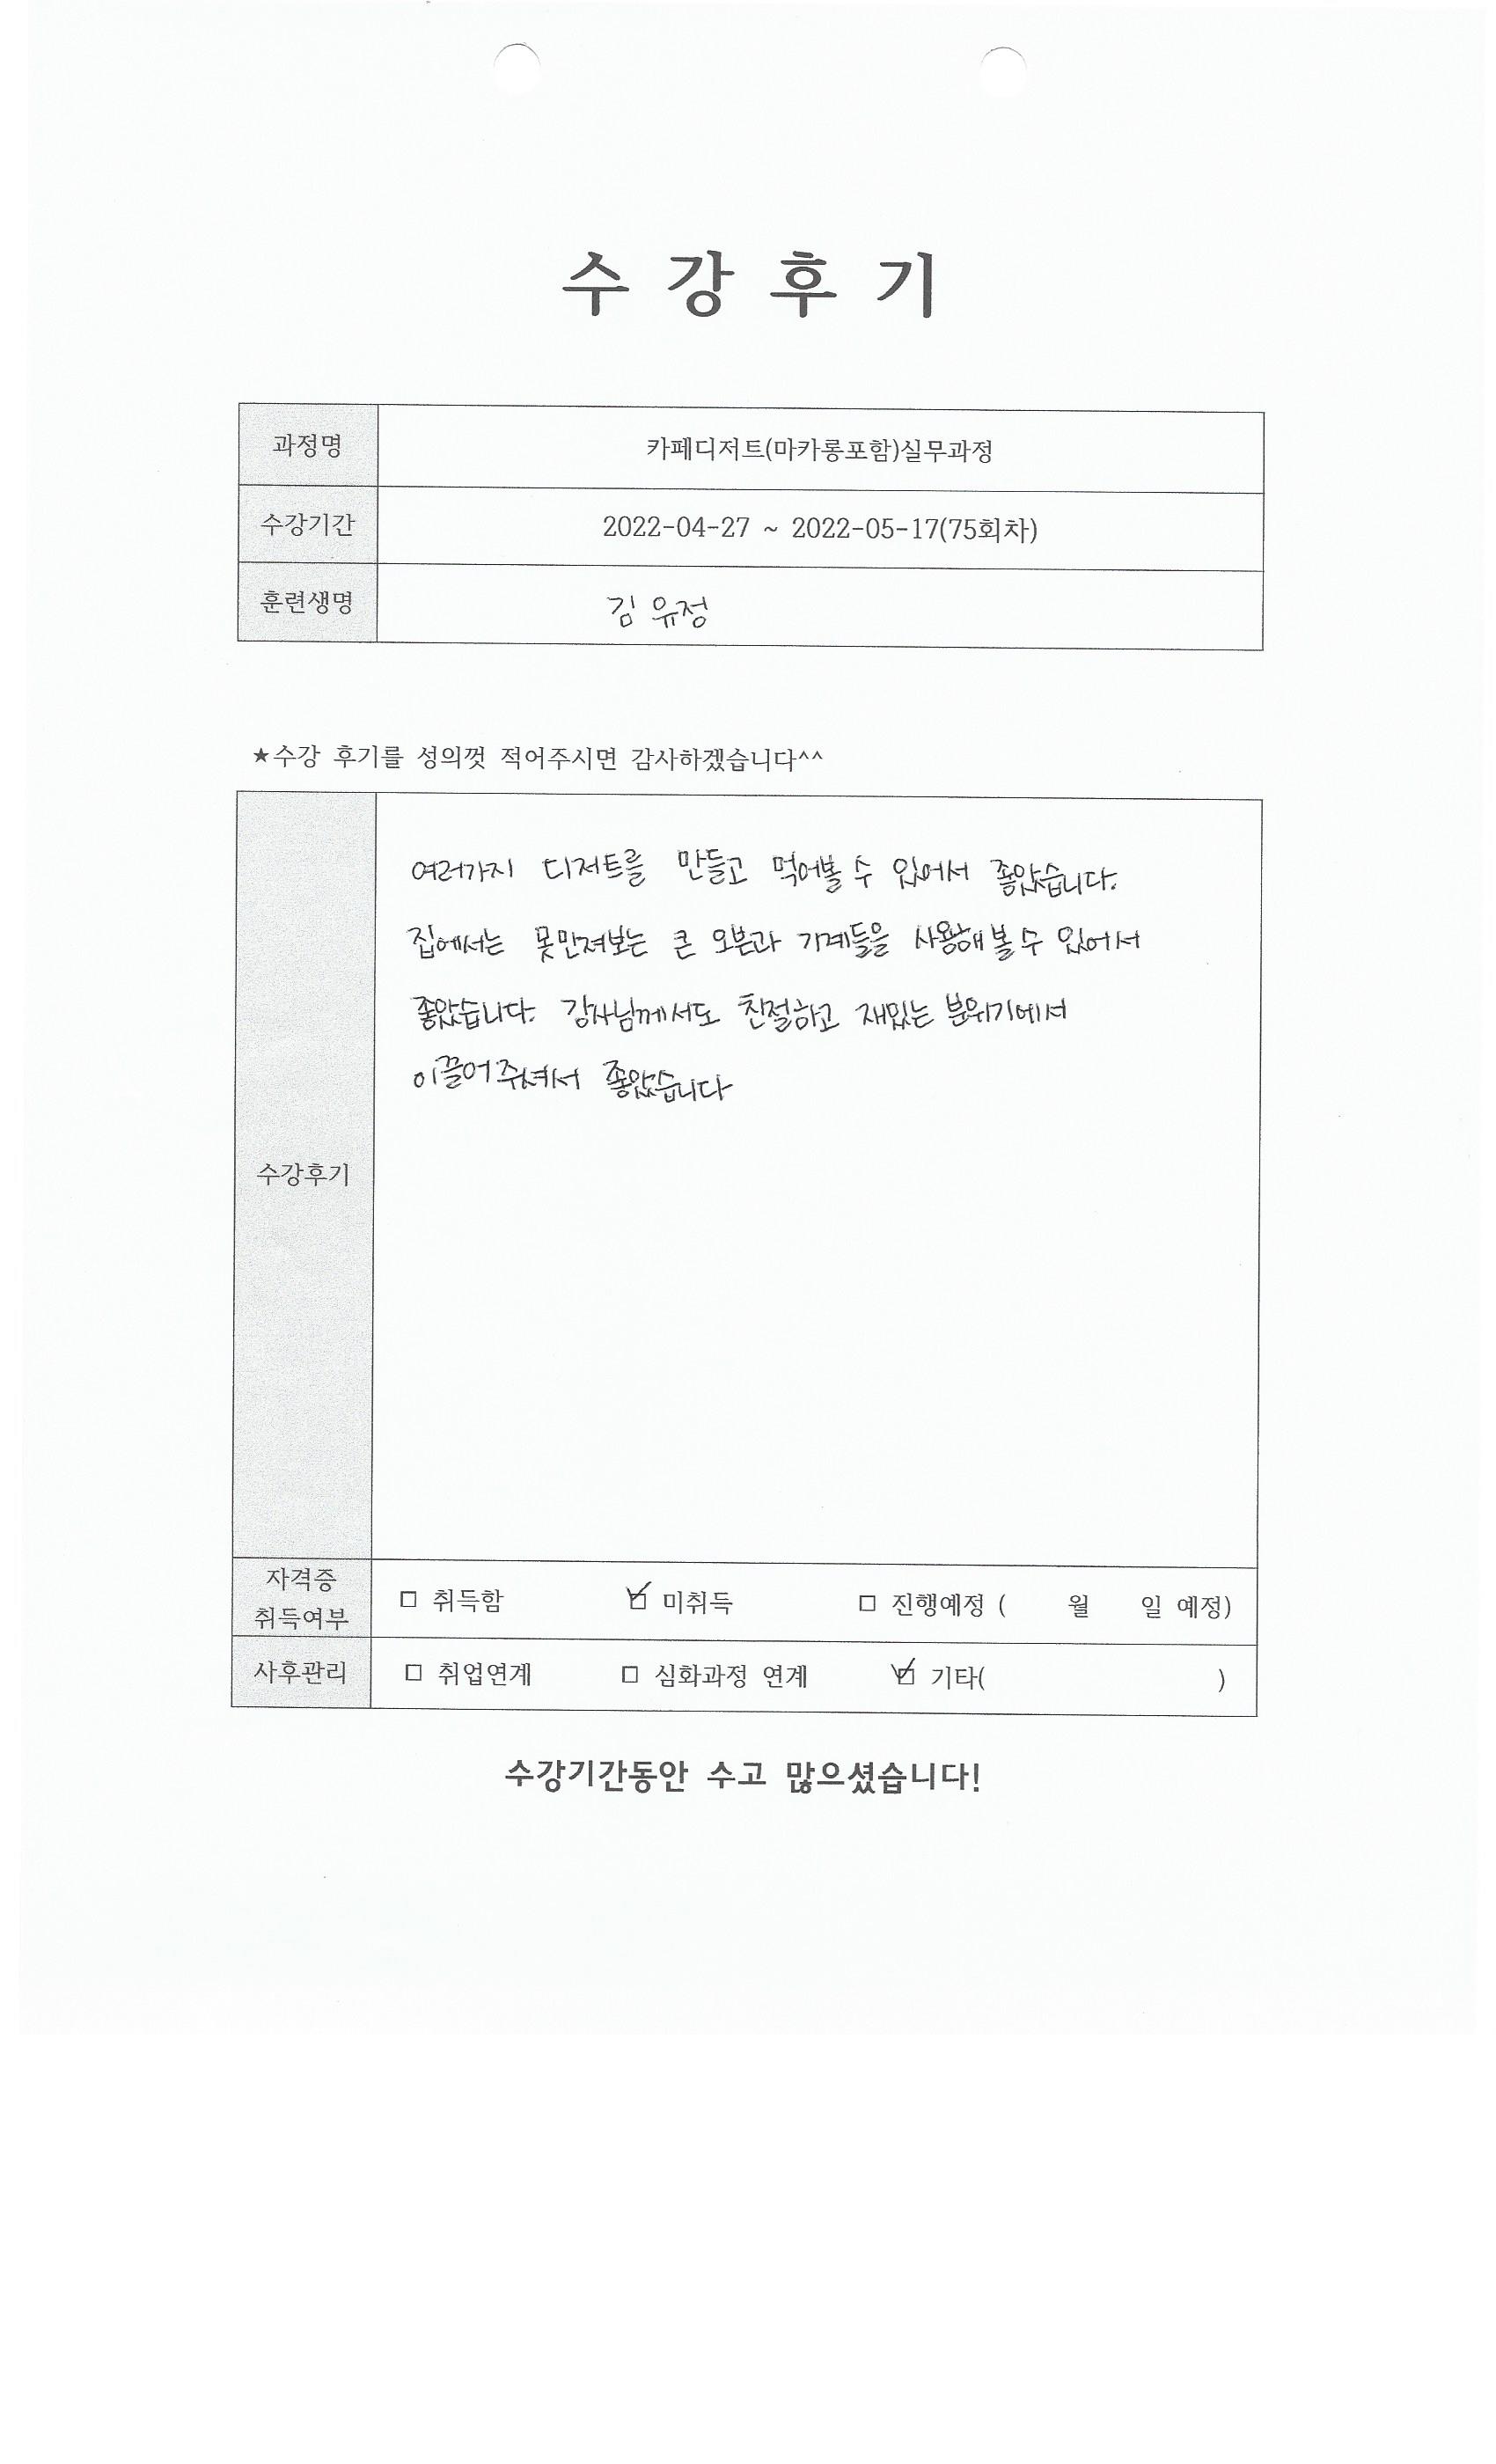 수 강 후 기
과정명 카페디저트(마카롱포함)실무과정
수강기간 2022-04-27 ~ 2022-05-17(75회차)
훈련생명 김 유정
★수강 후기를 성의껏 적어주시면 감사하겠습니다^^
여러가지 디저트를 만들고 먹어볼 수 있어서 좋았습니다.
집에서는 못만져보는 큰 오븐과 기계들을 사용해 볼 수 있어서
좋았습니다. 강사님께서도 친절하고 재밌는 분위기에서
이끌어주셔서 좋았습니다
수강후기
자격증
취득여부 □ 취득함 ☑ 미취득 □ 진행예정 ( 월 일 예정)
사후관리 □ 취업연계 □ 심화과정 연계 ☑ 기타( )
수강기간동안 수고 많으셨습니다!